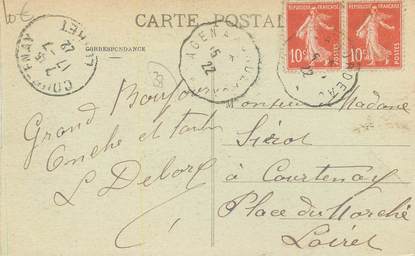 10€
CARTE POSTALE
CORRESPONDANCE
COURTENAY
LOIRET
17
22
AGEN
15
22
REPUBLIQUE FRANÇAISE
10c
REPUBLIQUE FRANÇAISE
10c
Grand Bonjour
Oncle et tante
L Debord
Monsieur Madame
à Courtenay
Place du Marché
Loiret